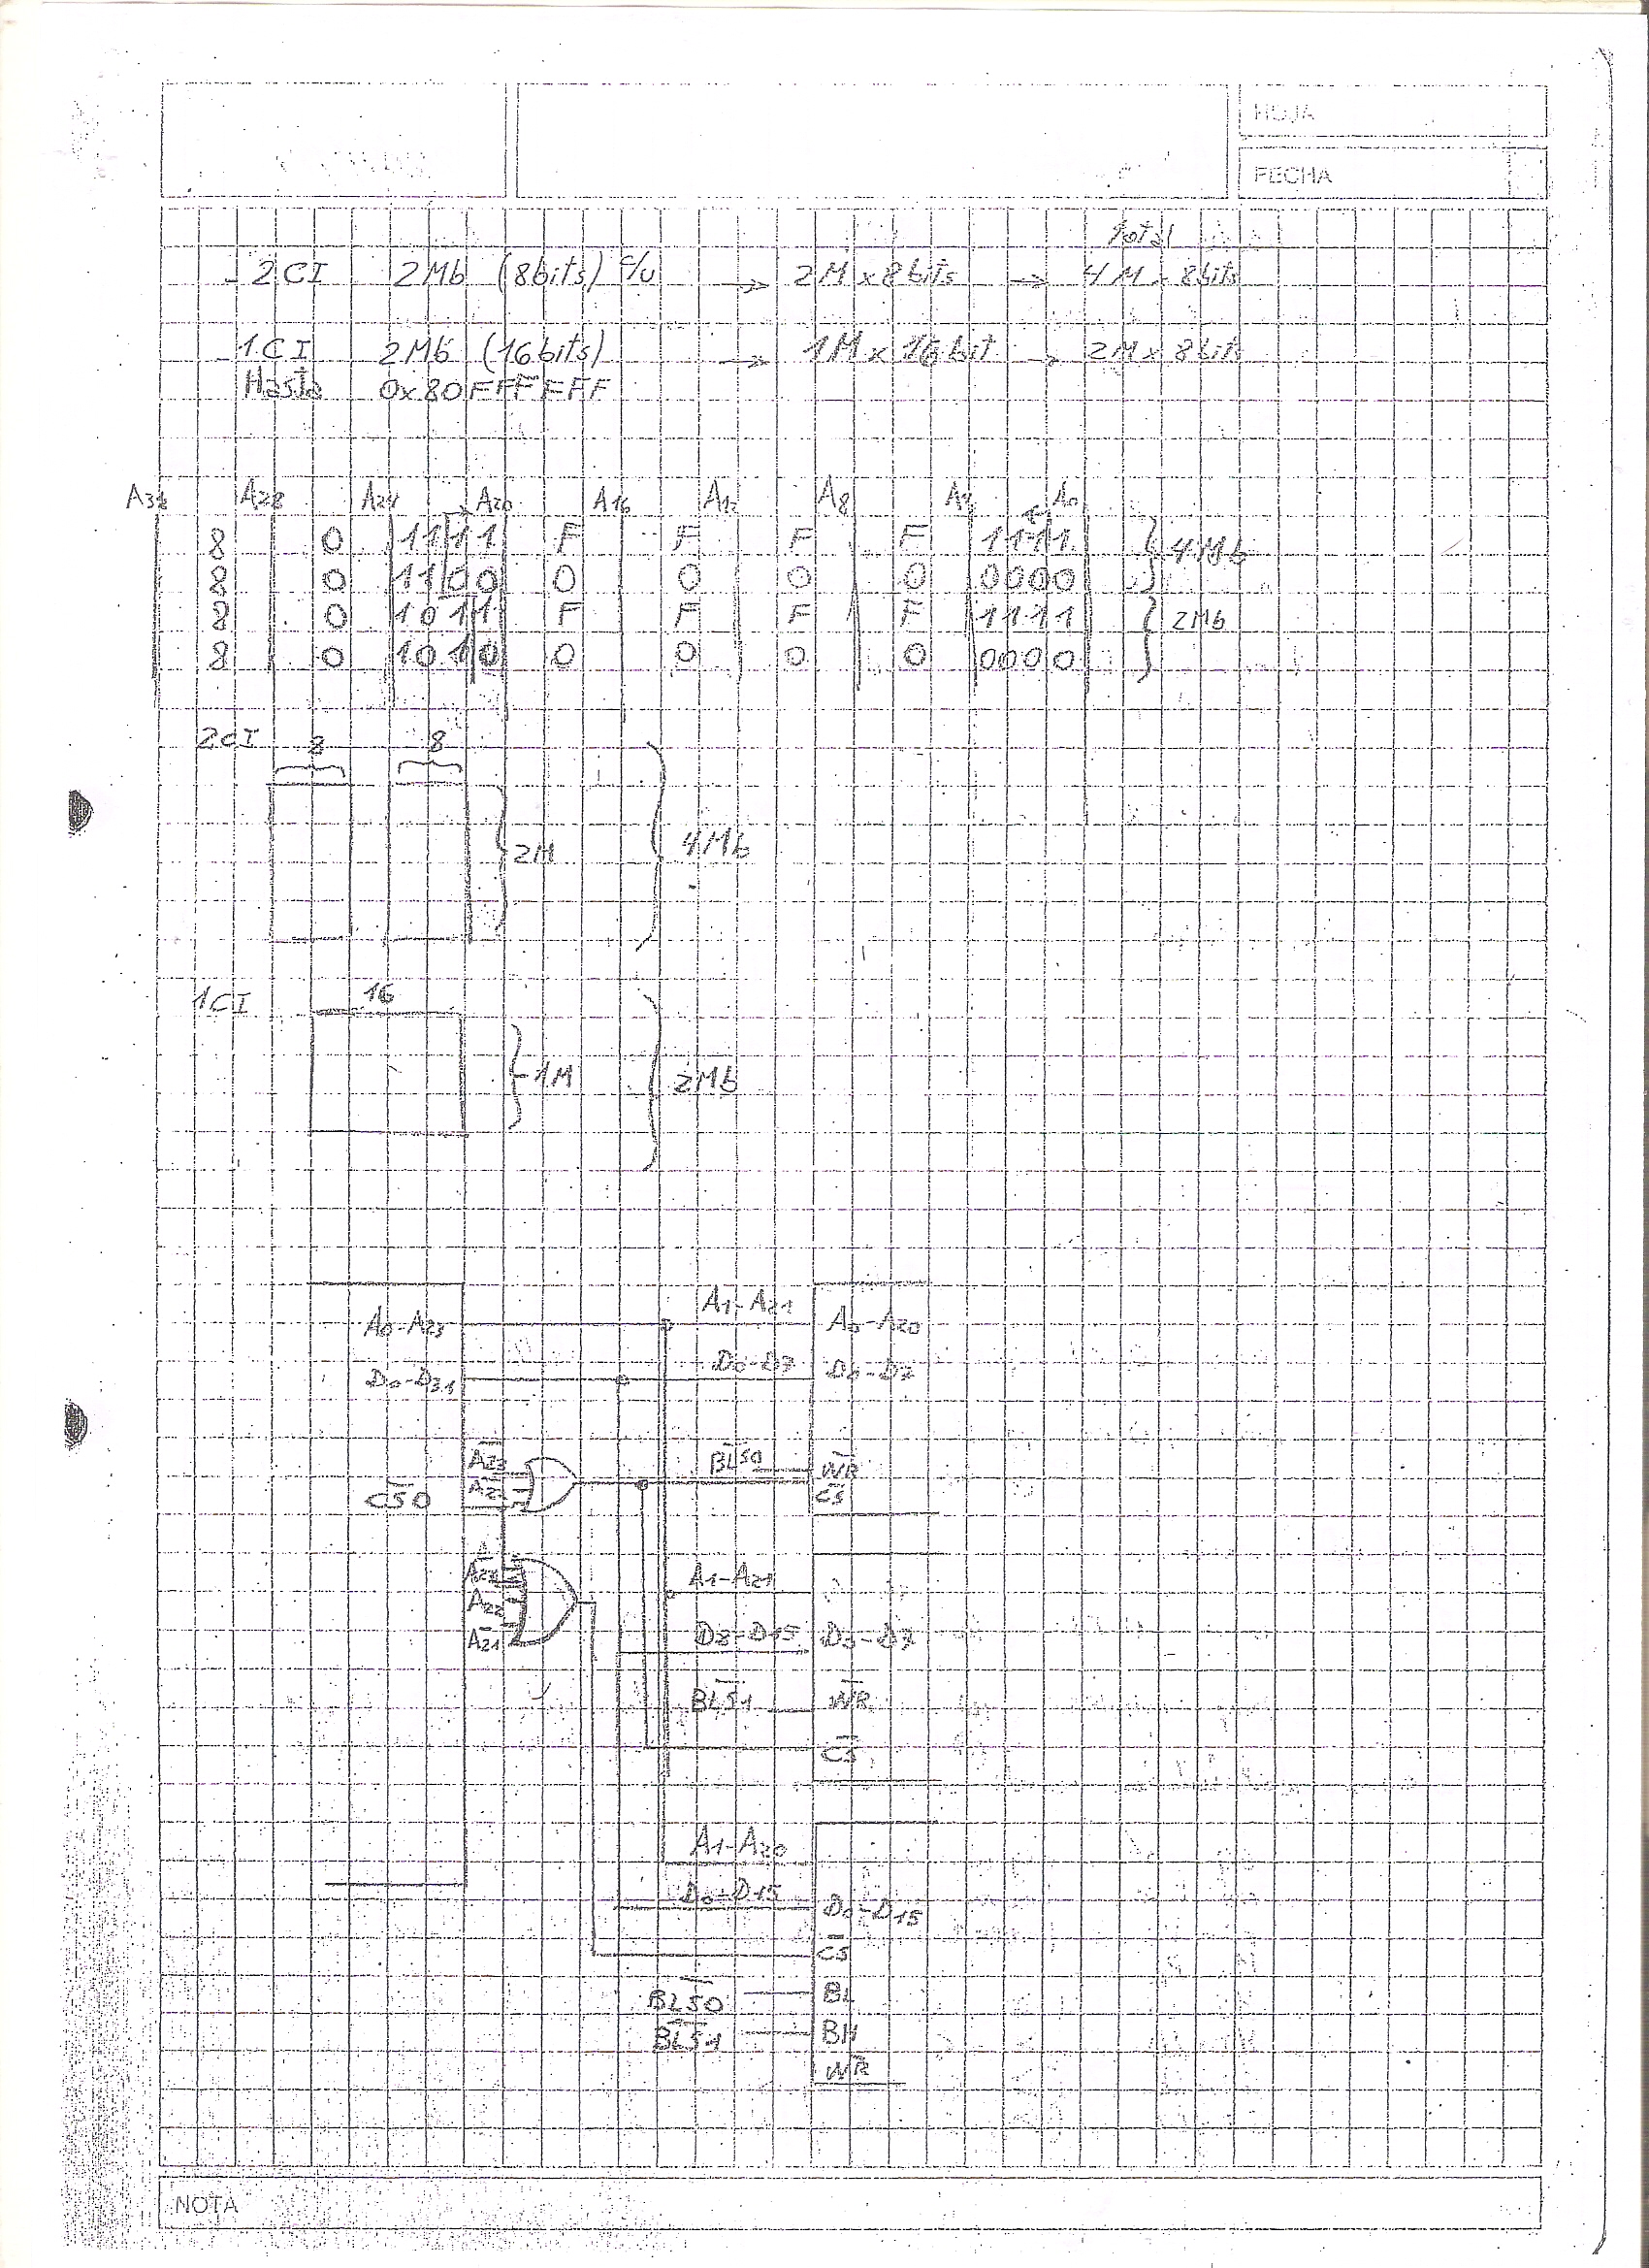 HOJA
FECHA
Total
- 2 CI 2Mb (8bits) c/u → 2M x 8 bits → 4M x 8bits
- 1 CI 2Mb (16bits) → 1M x 16 bit → 2M x 8 bits
Hasta 0x80FFFFFF
A31 A28 A24 A20 A16 A12 A8 A4 A0
8 0 1111 F F F F 1111 } 4Mb
8 0 1100 0 0 0 0 0000
8 0 1011 F F F F 1111 } 2Mb
8 0 1010 0 0 0 0 0000
2CI 8 8
2M 4Mb
1CI 16
1M 2Mb
A1-A21
A0-A23 A0-A20
D0-D7
D0-D31 D0-D7
A̅2̅3̅ B̅L̅S̅0̅ W̅R̅
C̅S̅0̅ A̅2̅2̅ C̅S̅
A1-A21
A22
A̅2̅1̅ D8-D15 D0-D7
B̅L̅S̅1̅ W̅R̅
C̅S̅
A1-A20
D0-D15
D0-D15
C̅S̅
B̅L̅S̅0̅ BL
B̅L̅S̅1̅ BH
W̅R̅
NOTA